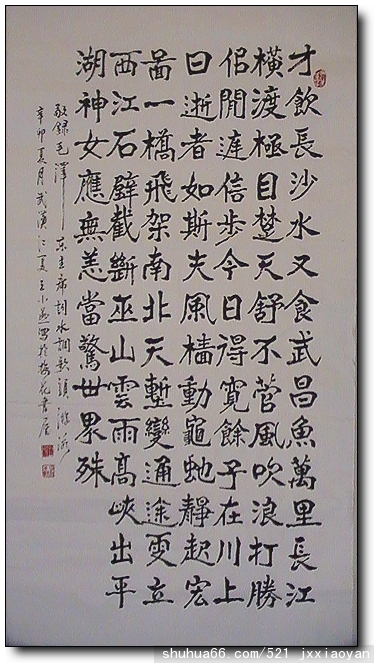 才飲長沙水又食武昌魚萬里長江
橫渡極目楚天舒不管風吹浪打勝
佀閒庭信步今日得寬餘子在川上
曰逝者如斯夫風檣動龜虵靜起宏
啚一橋飛架南北天塹變通途更立
西江石壁截斷巫山雲雨高峽出平
湖神女應無恙當驚世界殊
敬録毛澤东主席詞水調歌頭游泳
辛卯夏月武漢江夏王小寫於梅花書屋
shuhua66.com/521 jxxiaoyan